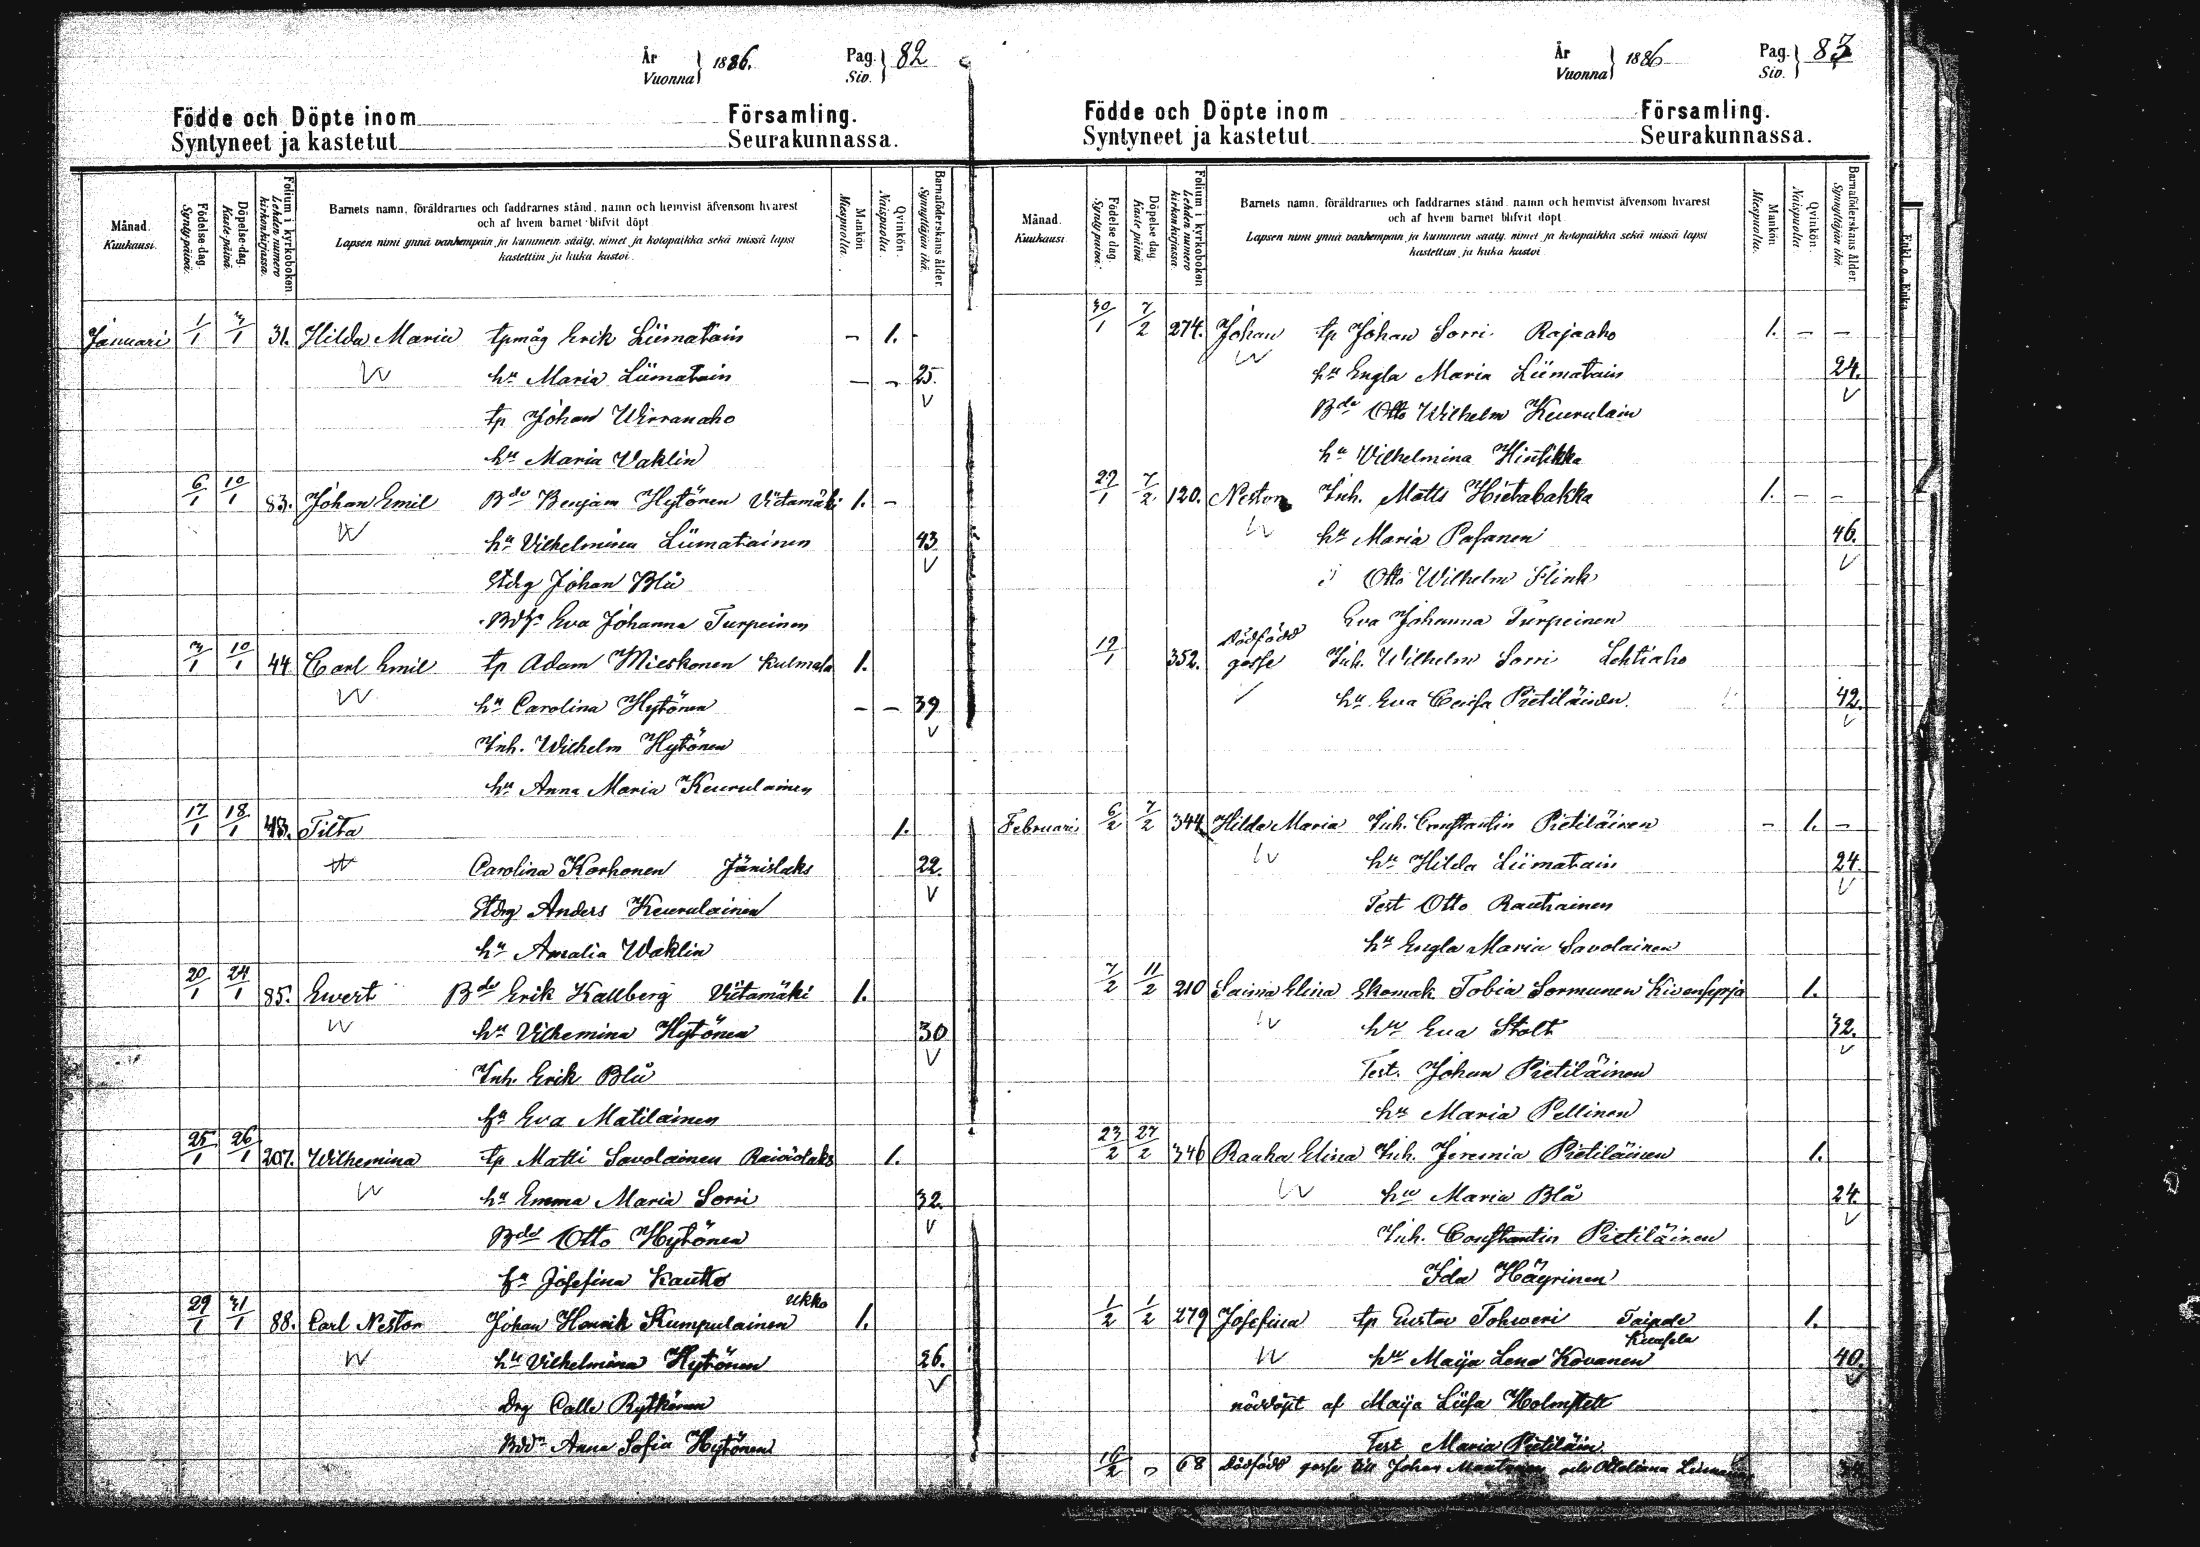 År
Vuonna } 1886.
Pag.
Siv. } 82
Födde och Döpte inom Församling.
Syntyneet ja kastetut Seurakunnassa.
Månad.
Kuukausi.
Födelse dag.
Synty päivä.
Döpelse-dag.
Kaste-päivä.
Folium i kyrkoboken
Lehden numero kirkonkirjassa.
Barnets namn, föräldrarnes och faddrarnes stånd, namn och hemvist äfvensom hvarest
och af hvem barnet blifvit döpt
Lapsen nimi ynnä vanhempain ja kummein sääty, nimet ja kotopaikka sekä missä lapsi
kastettiin ja kuka kastoi.
Mankön
Miespuolia.
Qvinkön.
Naispuolia.
Barnaföderskans ålder.
Synnyttäjän ikä.
Januari 1/1 3/1 31. Hilda Maria tpmåg Erik Liimatain – 1. -
hu Maria Liimatain – - 25.
tp Johan Wirranaho
hu Maria Vaklin
6/1 10/1 83. Johan Emil Bde Benjam Hytönen Viitamäki 1. -
hu Vilhelmina Liimatainen 43
Stdrg Johan Blå
Eva Johanna Turpeinen
3/1 10/1 44. Carl Emil tp Adam Mieskonen Kulmala 1.
hu Carolina Hytönen – – 39
Inh. Wilhelm Hytönen
hu Anna Maria Keurulainen
17/1 18/1 43. Tilta 1.
Carolina Korhonen Jänislaks 22.
Stdrg Anders Keurulainen
hu Amalia Waklin
20/1 24/1 85. Ewert Bde Erik Kallberg Viitamäki 1.
hu Vilhemina Hytönen 30
Inh. Erik Blå
hu Eva Matilainen
25/1 26/1 207. Wilhemina tp Matti Savolainen 1.
hu Emma Maria Sorri 32.
Bde Otto Hytönen
hu Josefina Kautto
29/1 31/1 88. Carl Nestor Johan Henrik Kumpulainen Ukko 1.
hu Vilhelmina Hytönen 26.
Drg Calle Rytkönen
Anna Sofia Hytönen
År
Vuonna } 1886
Pag.
Siv. } 83
Födde och Döpte inom Församling.
Syntyneet ja kastetut Seurakunnassa.
Månad.
Kuukausi.
Födelse dag.
Synty päivä.
Döpelse dag
Kaste päivä
Folium i kyrkoboken
Lehden numero kirkonkirjassa.
Barnets namn, föräldrarnes och faddrarnes stånd, namn och hemvist äfvensom hvarest
och af hvem barnet blifvit döpt
Lapsen nimi ynnä vanhempain ja kummein sääty, nimet ja kotopaikka sekä missä lapsi
kastettiin ja kuka kastoi
Mankön
Miespuolia.
Qvinkön.
Naispuolia
Barnaföderskans ålder.
Synnyttäjän ikä.
30/1 7/2 274. Johan tp Johan Sorri Rajaaho 1. – –
hu Engla Maria Liimatain 24.
Bde Otto Wilhelm Keurulain
hu Wilhelmina Hintikka
27/1 7/2 120. Nestor Inh. Matts Hietabakka 1. – –
hu Maria Pasanen 46.
Otto Wilhelm Flink
Eva Johanna Turpeinen
19/1 352. Dödfödd gosse Inh. Wilhelm Sorri Lehtiaho
hu Eva Pietiläinen 42.
Februari 6/2 7/2 344 Hilda Maria Inh. Constantin Pietiläinen – 1. –
hu Hilda Liimatain 24.
Test Otto Rautiainen
hu Engla Maria Savolainen
7/2 11/2 210 Saima Elina Skomak Tobia Sormunen 1.
hu Eva Stolt 32.
Test. Johan Pietiläinen
hu Maria Pellinen
23/2 27/2 346 Rauha Elina Inh. Jeremia Pietiläinen 1.
hu Maria Blå 24.
Inh. Constantin Pietiläinen
Ida Häyrinen
1/2 1/2 279 Josefina tp Gustav Tohweri Taipale 1.
hu Maija Lena Kovanen 40.
nöddöpt af Maija Liisa Holmstett
Test Maria Pietiläin.
16/2 68 Dödfödd gosse till Johan